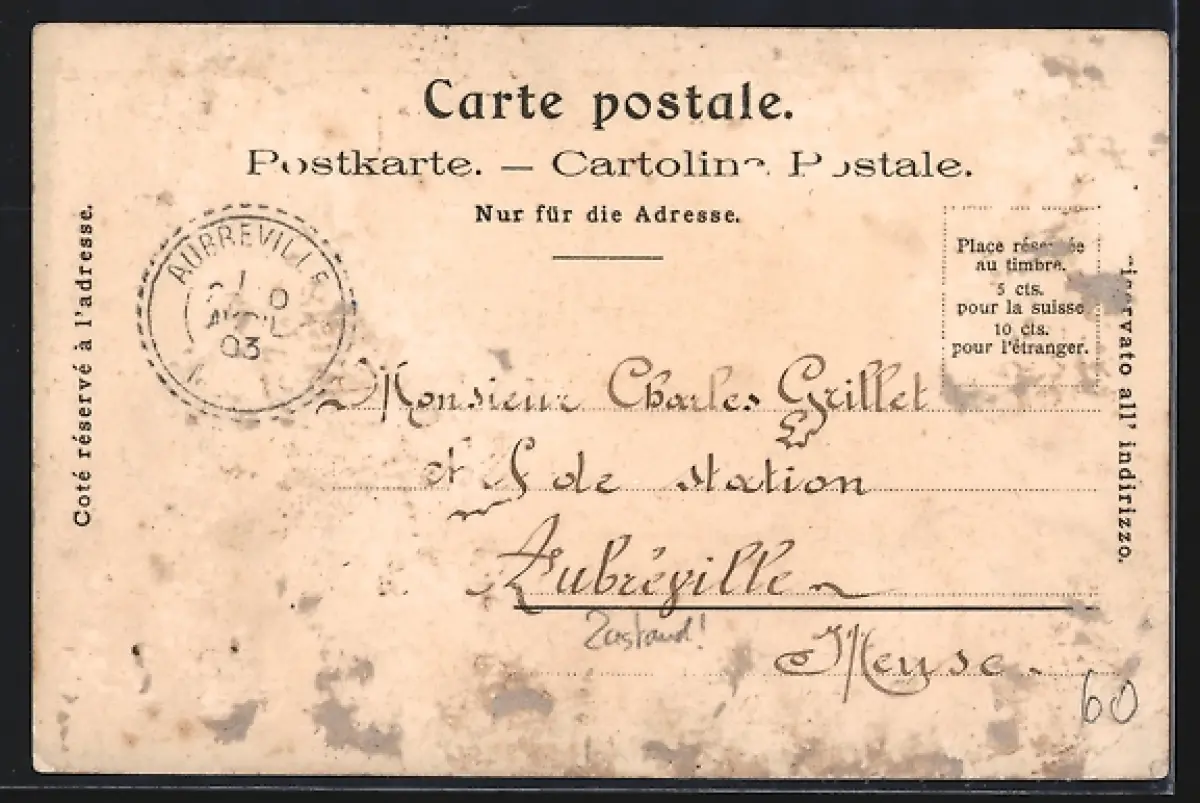 Carte postale.
Postkarte. — Cartolina Postale.
Nur für die Adresse.
Coté réservé à l'adresse.
AUBREVILLE
AVRIL
03
Place réservée
au timbre.
5 cts.
pour la suisse
10 cts.
pour l'étranger.
Riservato all' indirizzo.
Monsieur Charles Grillet
de station
Aubréville
Zustand!
Meuse.
60